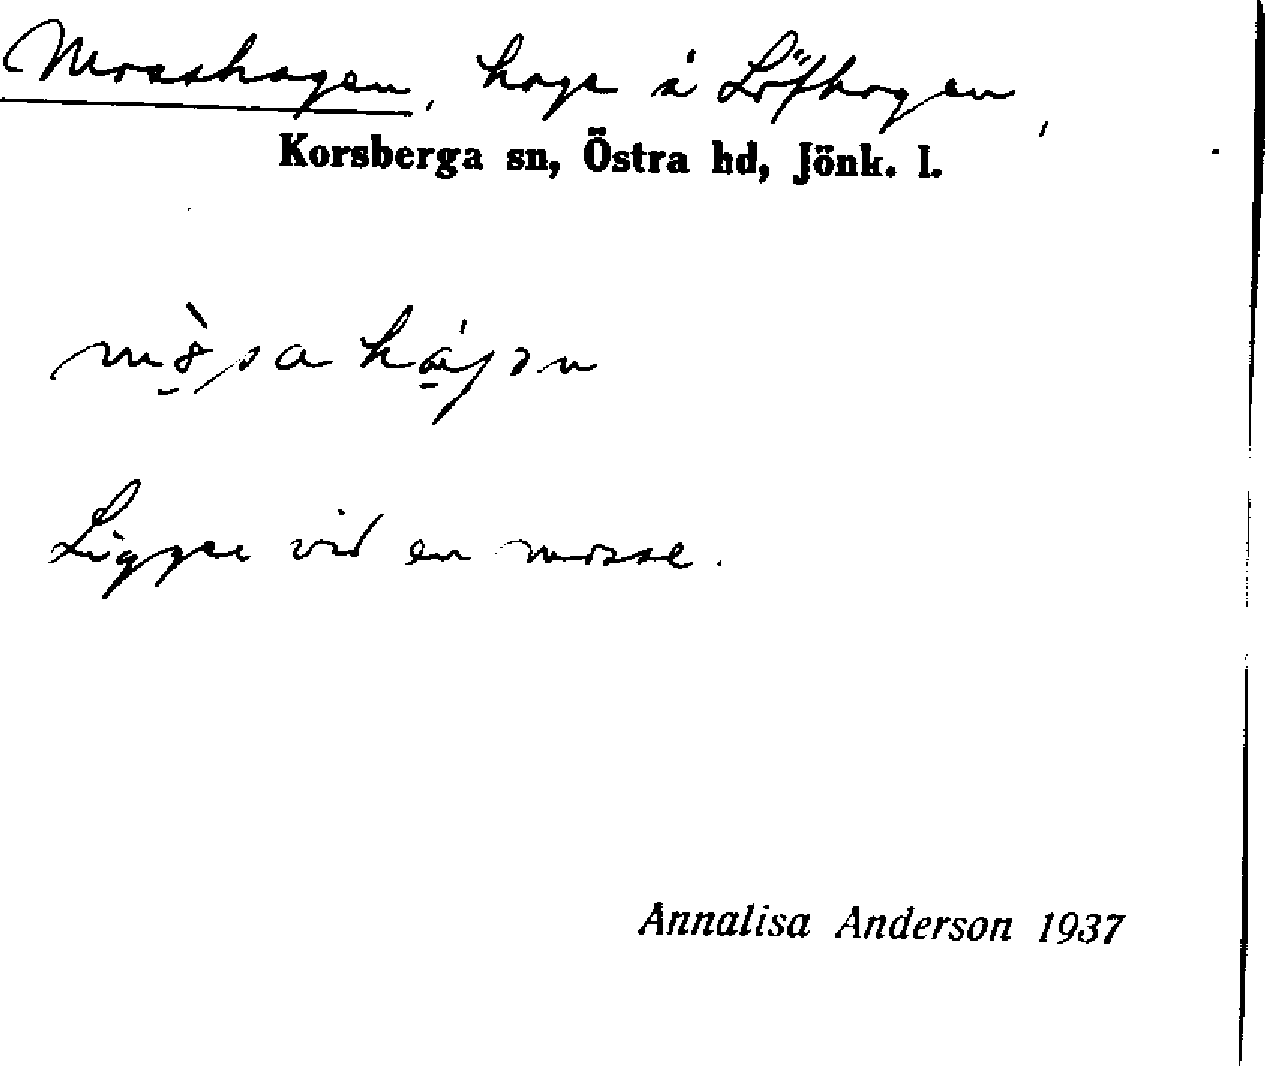 Mosshagen, hage å Löfhagen,
Korsberga sn, Östra hd, Jönk. l.
Ligger vid en mosse.
Annalisa Anderson 1937